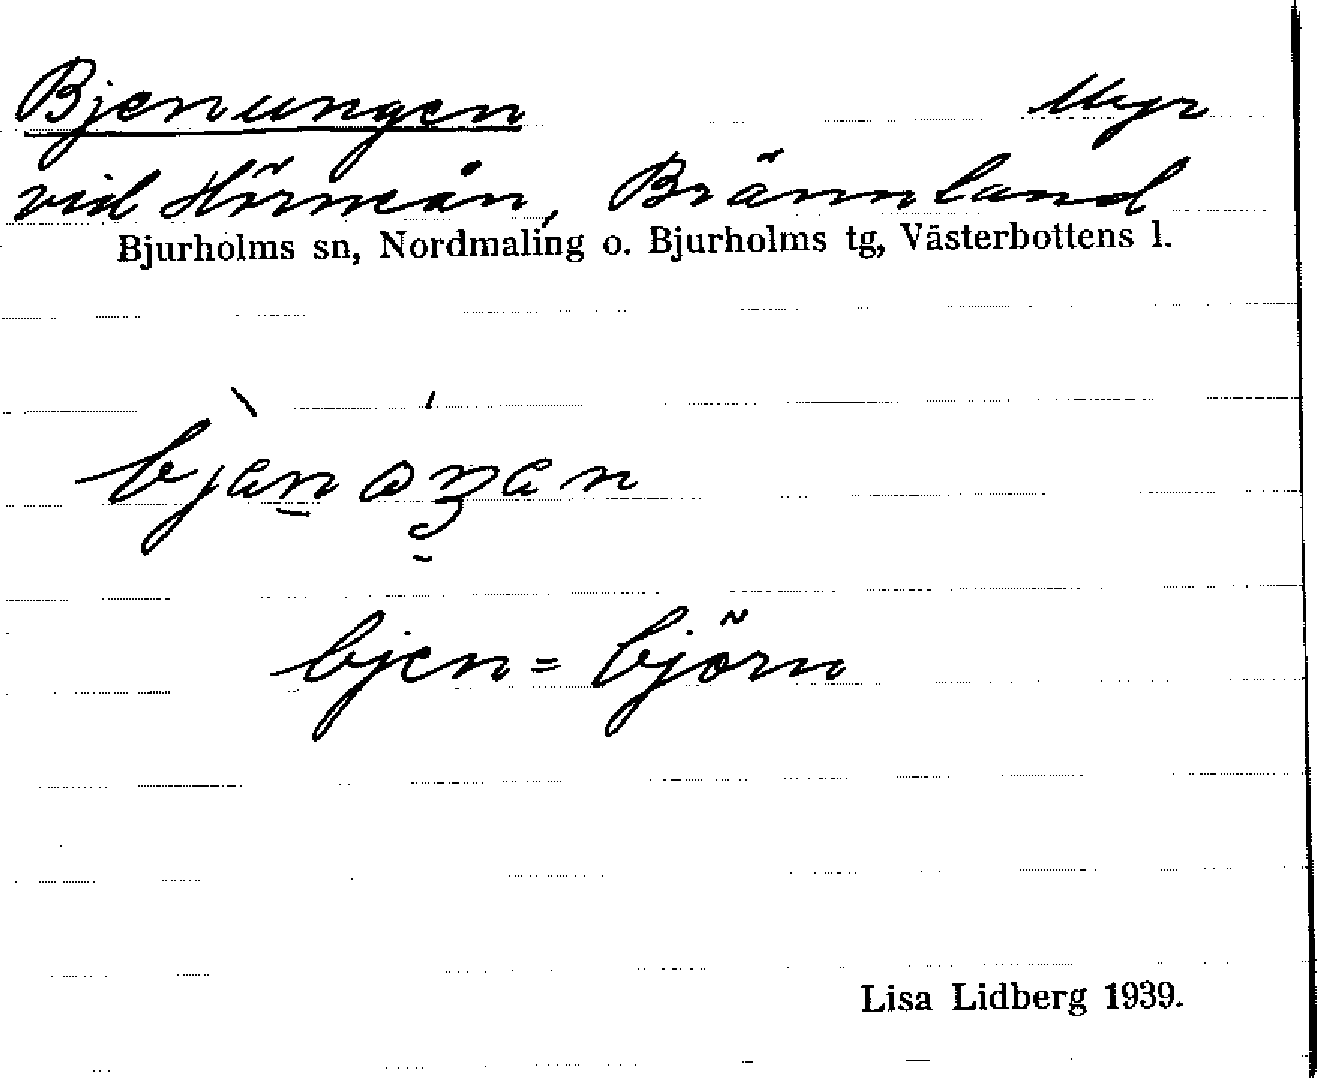 Bjenungen Myr
vid Hörneån, Brännland
Bjurholms sn, Nordmaling o. Bjurholms tg, Västerbottens l.
bjen = björn
Lisa Lidberg 1939.